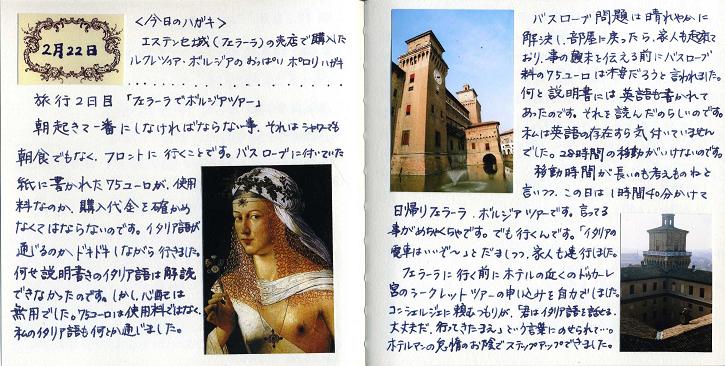 2月22日
<今日のハガキ>
エステンセ城(フェラーラ)の売店で購入した
ルクレツィア・ボルジアのおっぱいポロリハガキ
旅行2日目「フェラーラでボルジアツアー」
朝起きて一番にしなければならない事、それはシャワーでも
朝食でもなく、フロントに行くことです。バスローブに付いていた
紙に書かれた75ユーロが、使用
料なのか、購入代金を確かめ
なくてはならないのです。イタリア語が
通じるのかドキドキしながら行きました。
何せ説明書きのイタリア語は解読
できなかったのです。しかし心配は
無用でした。75ユーロは使用料ではなく、
私のイタリア語も何とか通じました。
バスローブ問題は晴れやかに
解決し、部屋に戻ったら、家人も起きて
おり、事の顛末を伝える前にバスローブ
料の75ユーロは不要だろうと言われました。
何と説明書には英語も書かれて
あったのです。それを読んだのらしいのです。
私は英語の存在すら気付いていません
でした。28時間の移動がいけないのです。
移動時間が長いのも考えものねと
言いつつ、この日は1時間40分かけて
日帰りフェラーラ、ボルジアツアーです。言ってる
事がめちゃくちゃです。でも行くんです。「イタリアの
電車はいいぞ〜」とだましつつ、家人も連行しました。
フェラーラに行く前にホテルの近くのドゥカーレ
宮のシークレットツアーの申し込みを自力でしました。
コンシェルジェに頼むつもりが、「君はイタリア語を話せる、
大丈夫だ、行ってきたまえ」という言葉にのせられて…。
ホテルマンの怠惰のお陰でステップアップできました。